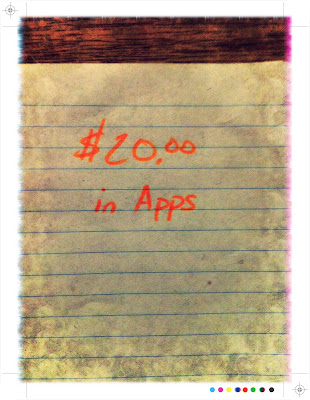 $20.00
in Apps